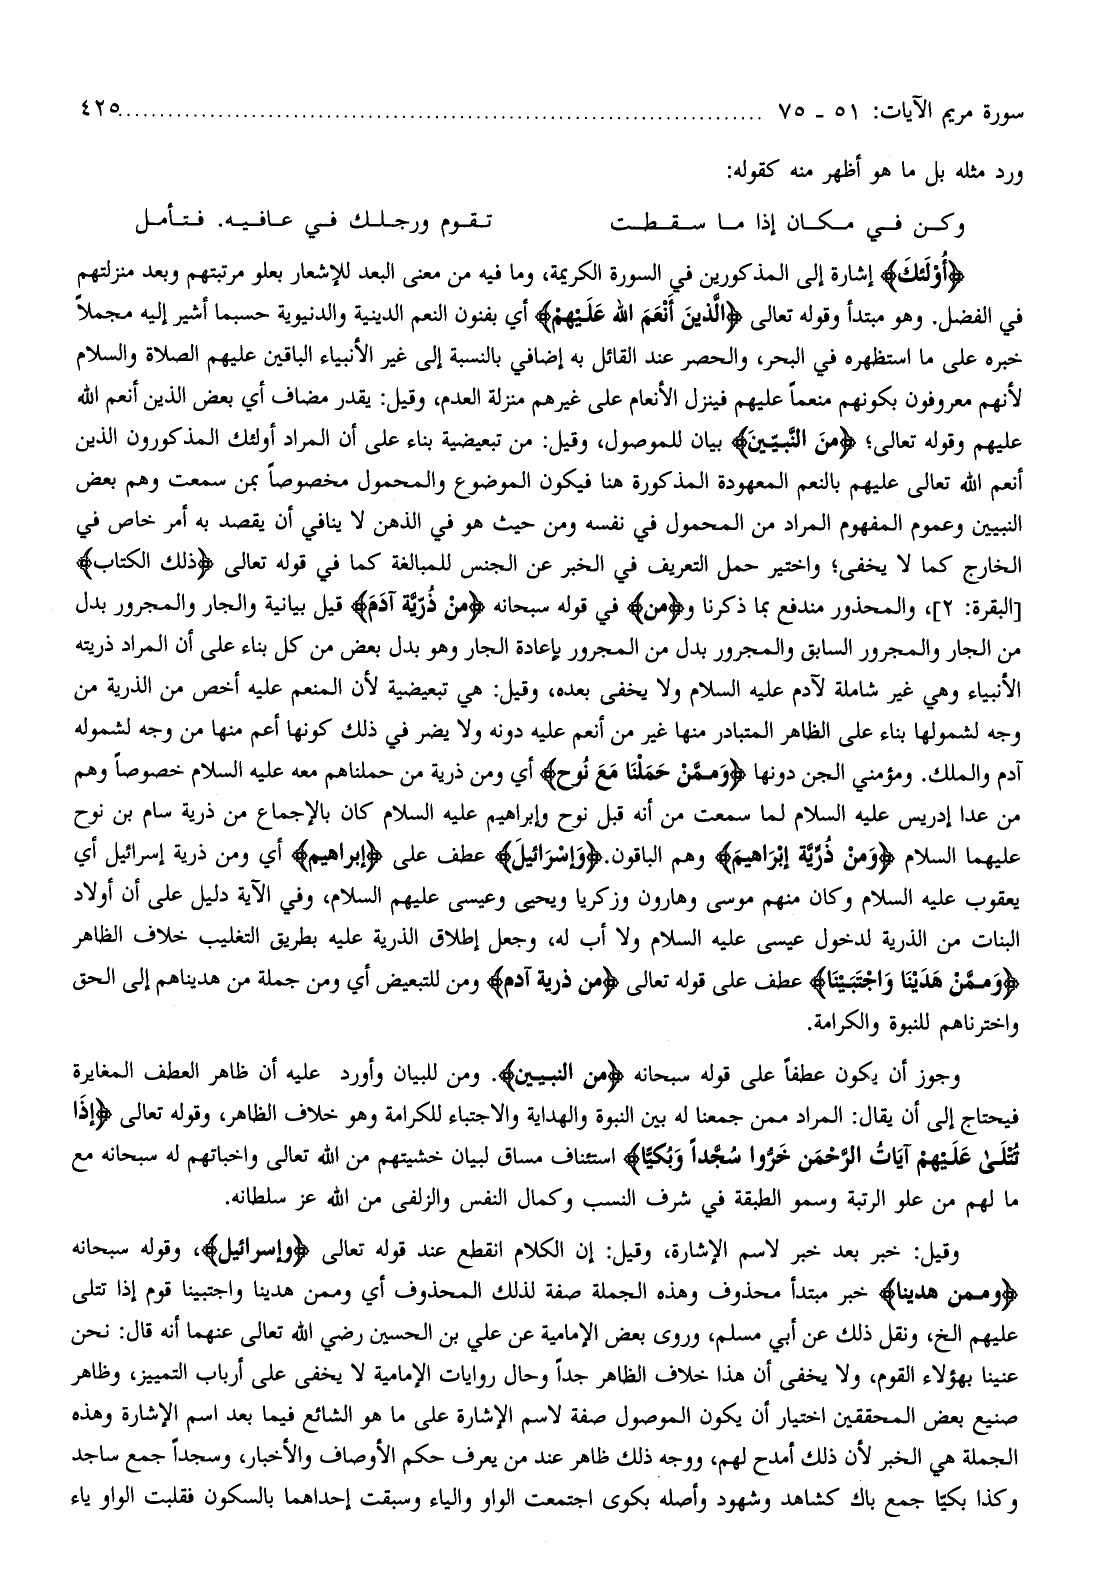 سورة مريم الآيات: ٥١ - ٧٥ ................................................ ٤٢٥
ورد مثله بل ما هو أظهر منه كقوله:
وكن في مكان إذا ما سقطت تقوم ورجلك في عافيه. فتأمل
﴿أُوْلَئكَ﴾ إشارة إلى المذكورين في السورة الكريمة، وما فيه من معنى البعد للإشعار بعلو مرتبتهم وبعد منزلتهم
في الفضل. وهو مبتدأ وقوله تعالى ﴿الَّذينَ أَنْعَمَ الله عَلَيْهمْ﴾ أي بفنون النعم الدينية والدنيوية حسبما أشير إليه مجملاً
خبره على ما استظهره في البحر، والحصر عند القائل به إضافي بالنسبة إلى غير الأنبياء الباقين عليهم الصلاة والسلام
لأنهم معروفون بكونهم منعماً عليهم فينزل الأنعام على غيرهم منزلة العدم، وقيل: يقدر مضاف أي بعض الذين أنعم الله
عليهم وقوله تعالى؛ ﴿منَ النَّبيّينَ﴾ بيان للموصول، وقيل: من تبعيضية بناء على أن المراد أولئك المذكورون الذين
أنعم الله تعالى عليهم بالنعم المعهودة المذكورة هنا فيكون الموضوع والمحمول مخصوصاً بمن سمعت وهم بعض
النبيين وعموم المفهوم المراد من المحمول في نفسه ومن حيث هو في الذهن لا ينافي أن يقصد به أمر خاص في
الخارج كما لا يخفى؛ واختير حمل التعريف في الخبر عن الجنس للمبالغة كما في قوله تعالى ﴿ذلك الكتاب﴾
[البقرة: ٢]، والمحذور مندفع بما ذكرنا و﴿من﴾ في قوله سبحانه ﴿منْ ذُرّيَّة آدَمَ﴾ قيل بيانية والجار والمجرور بدل
من الجار والمجرور السابق والمجرور بدل من المجرور بإعادة الجار وهو بدل بعض من كل بناء على أن المراد ذريته
الأنبياء وهي غير شاملة لآدم عليه السلام ولا يخفى بعده، وقيل: هي تبعيضية لأن المنعم عليه أخص من الذرية من
وجه لشمولها بناء على الظاهر المتبادر منها غير من أنعم عليه دونه ولا يضر في ذلك كونها أعم منها من وجه لشموله
آدم والملك. ومؤمني الجن دونها ﴿وَممَّنْ حَمَلْنَا مَعَ نُوح﴾ أي ومن ذرية من حملناهم معه عليه السلام خصوصاً وهم
من عدا إدريس عليه السلام لما سمعت من أنه قبل نوح وإبراهيم عليه السلام كان بالإجماع من ذرية سام بن نوح
عليهما السلام ﴿وَمنْ ذُرّيَّة إبْرَاهيمَ﴾ وهم الباقون.﴿وَإسْرَائيلَ﴾ عطف على ﴿إبراهيم﴾ أي ومن ذرية إسرائيل أي
يعقوب عليه السلام وكان منهم موسى وهارون وزكريا ويحيى وعيسى عليهم السلام، وفي الآية دليل على أن أولاد
البنات من الذرية لدخول عيسى عليه السلام ولا أب له، وجعل إطلاق الذرية عليه بطريق التغليب خلاف الظاهر
﴿وَممَّنْ هَدَيْنَا وَاجْتَبَيْنَا﴾ عطف على قوله تعالى ﴿من ذرية آدم﴾ ومن للتبعيض أي ومن جملة من هديناهم إلى الحق
واخترناهم للنبوة والكرامة.
وجوز أن يكون عطفاً على قوله سبحانه ﴿من النبيين﴾. ومن للبيان وأورد عليه أن ظاهر العطف المغايرة
فيحتاج إلى أن يقال: المراد ممن جمعنا له بين النبوة والهداية والاجتباء للكرامة وهو خلاف الظاهر، وقوله تعالى ﴿إذَا
تُتْلَىٰ عَلَيْهمْ آيَاتُ الرَّحْمَن خَرُّوا سُجَّداً وَبُكيًّا﴾ استئناف مساق لبيان خشيتهم من الله تعالى واخباتهم له سبحانه مع
ما لهم من علو الرتبة وسمو الطبقة في شرف النسب وكمال النفس والزلفى من الله عز سلطانه.
وقيل: خبر بعد خبر لاسم الإشارة، وقيل: إن الكلام انقطع عند قوله تعالى ﴿وإسرائيل﴾، وقوله سبحانه
﴿وممن هدينا﴾ خبر مبتدأ محذوف وهذه الجملة صفة لذلك المحذوف أي وممن هدينا واجتبينا قوم إذا تتلى
عليهم الخ، ونقل ذلك عن أبي مسلم، وروى بعض الإمامية عن علي بن الحسين رضي الله تعالى عنهما أنه قال: نحن
عنينا بهؤلاء القوم، ولا يخفى أن هذا خلاف الظاهر جداً وحال روايات الإمامية لا يخفى على أرباب التمييز، وظاهر
صنيع بعض المحققين اختيار أن يكون الموصول صفة لاسم الإشارة على ما هو الشائع فيما بعد اسم الإشارة وهذه
الجملة هي الخبر لأن ذلك أمدح لهم، ووجه ذلك ظاهر عند من يعرف حكم الأوصاف والأخبار، وسجداً جمع ساجد
وكذا بكيّا جمع باك كشاهد وشهود وأصله بكوى اجتمعت الواو والياء وسبقت إحداهما بالسكون فقلبت الواو ياء